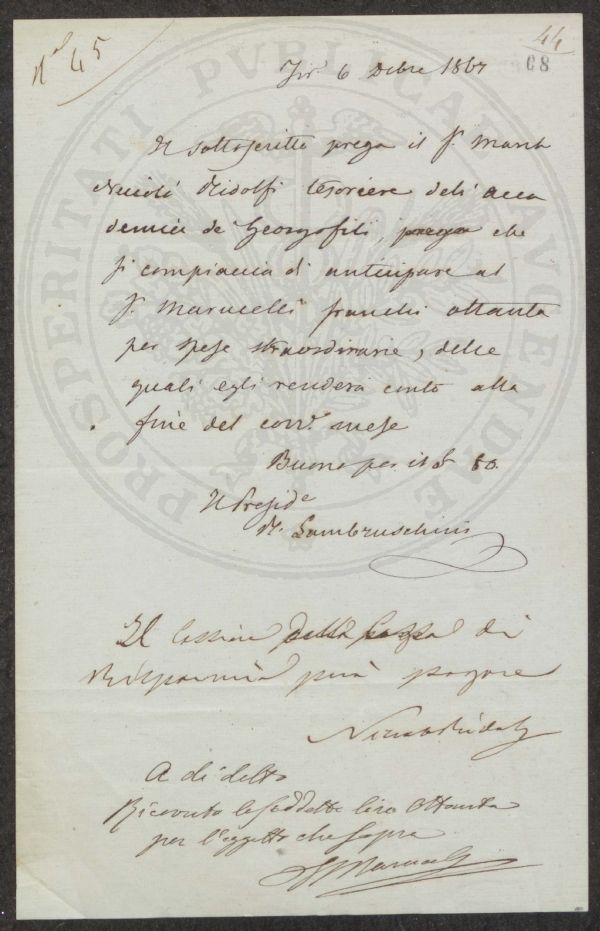 N° 45
44
68
6 Dcbre 1867
Il sottoscritto prega il Sr. March
Niccolò Ridolfi tesoriere dell' acca
demia de' Georgofili, prega che
si compiaccia di anticipare al
Sr. Marucelli franchi ottanta
per spese straordinarie, delle
quali egli renderà conto alla
fine del corr.e mese
Buono per it. £ 80.
Il Presid.e
R. Lambruschini
Il Cassiere della Cassa di
Risparmio può pagare
Niccolò Ridolfi
A dì detto
Ricevuto le suddette lire Ottanta
per l'oggetto che sopra
Marucelli
PROSPERITATI PVBLICAE AVGENDAE